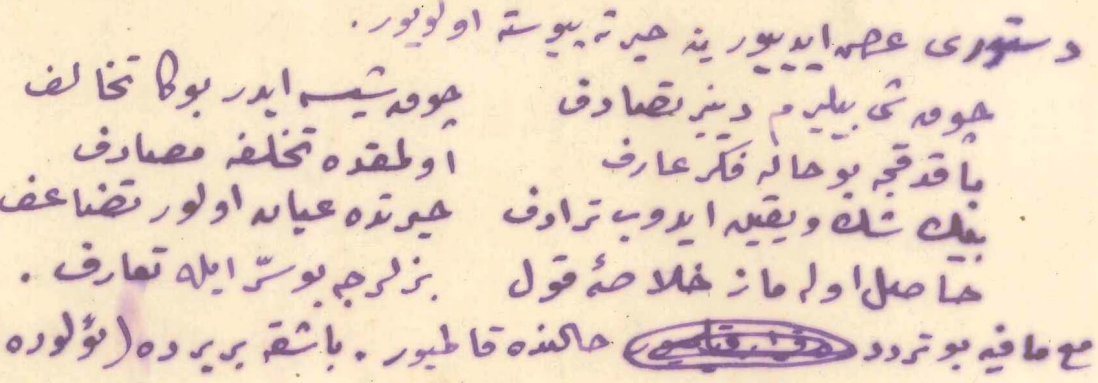 دستورى عرض ايدييور ينه حيرته پيوسته اولويور.
چوق شى بيليرم دينير تصادف چوق شيسه ايدر بوكا تخالف
باقدقجه بو حاله فكر عارف اولمقده تخلفه مصادف
بيڭ شك ويقين ايدوب ترادف حيرتده عيان اولور تضاعف
حاصل اوله ماز خلاصهٔ قول بزلرجه بو سرّ ايله تعارف.
مع مافيه بو تردد حالنده قالميور. باشقه بر يرده (